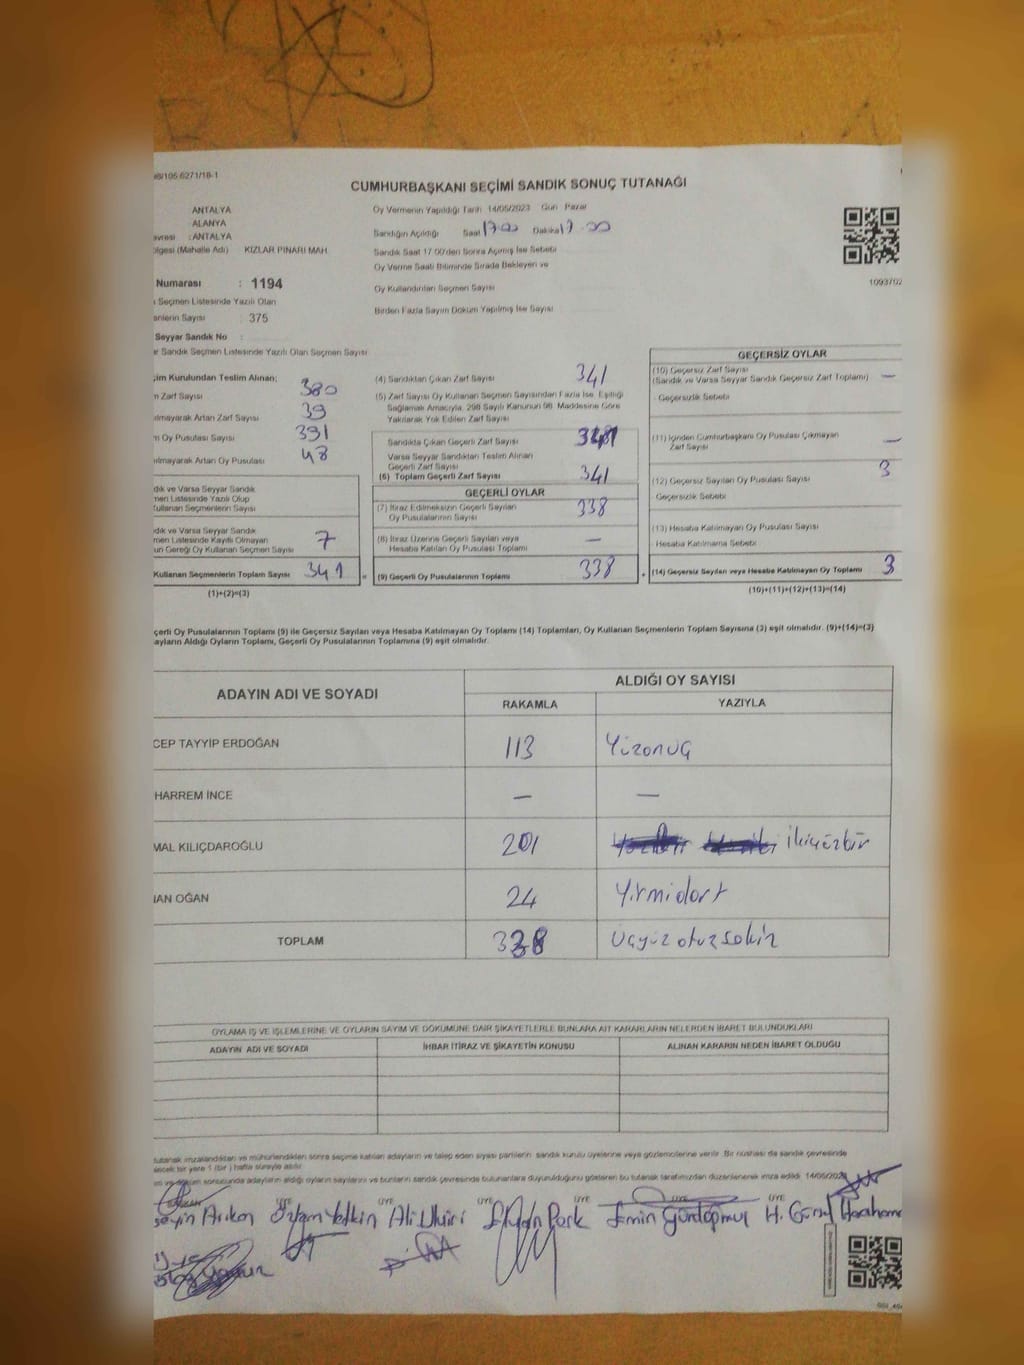 CUMHURBAŞKANI SEÇİMİ SANDIK SONUÇ TUTANAĞI
ANTALYA
ALANYA
: ANTALYA
(Mahalle Adı) KIZLAR PINARI MAH.
Numarası : 1194
Seçmen Listesinde Yazılı Olan
Sayısı : 375
Seyyar Sandık No :
Sandık Seçmen Listesinde Yazılı Olan Seçmen Sayısı
Oy Vermenin Yapıldığı Tarih 14/05/2023 Gün Pazar
Sandığın Açıldığı Saat 17:00 Dakika 17:00
Sandık Saat 17.00'den Sonra Açılmış İse Sebebi
Oy Verme Saati Bitiminde Sırada Bekleyen ve
Oy Kullandırılan Seçmen Sayısı
Birden Fazla Sayım Döküm Yapılmış İse Sayısı
1093702
Kurulundan Teslim Alınan;
Zarf Sayısı 380
Artan Zarf Sayısı 39
Oy Pusulası Sayısı 391
Artan Oy Pusulası 48
ve Varsa Seyyar Sandık
Listesinde Yazılı Olup
Kullanan Seçmenlerin Sayısı
ve Varsa Seyyar Sandık
Listesinde Kayıtlı Olmayan
Gereği Oy Kullanan Seçmen Sayısı 7
Kullanan Seçmenlerin Toplam Sayısı 341
(1)+(2)=(3)
(4) Sandıktan Çıkan Zarf Sayısı 341
(5) Zarf Sayısı Oy Kullanan Seçmen Sayısından Fazla İse, Eşitliği
Sağlamak Amacıyla, 298 Sayılı Kanunun 98. Maddesine Göre
Yakılarak Yok Edilen Zarf Sayısı
Sandıkta Çıkan Geçerli Zarf Sayısı 341
Varsa Seyyar Sandıktan Teslim Alınan
Geçerli Zarf Sayısı
(6) Toplam Geçerli Zarf Sayısı 341
GEÇERLİ OYLAR
(7) İtiraz Edilmeksizin Geçerli Sayılan
Oy Pusulalarının Sayısı 338
(8) İtiraz Üzerine Geçerli Sayılan veya
Hesaba Katılan Oy Pusulası Toplamı —
(9) Geçerli Oy Pusulalarının Toplamı 338
GEÇERSİZ OYLAR
(10) Geçersiz Zarf Sayısı
(Sandık ve Varsa Seyyar Sandık Geçersiz Zarf Toplamı) —
Geçersizlik Sebebi
(11) İçinden Cumhurbaşkanı Oy Pusulası Çıkmayan
Zarf Sayısı —
(12) Geçersiz Sayılan Oy Pusulası Sayısı 3
Geçersizlik Sebebi
(13) Hesaba Katılmayan Oy Pusulası Sayısı
Hesaba Katılmama Sebebi
(14) Geçersiz Sayılan veya Hesaba Katılmayan Oy Toplamı 3
(10)+(11)+(12)+(13)=(14)
Oy Pusulalarının Toplamı (9) ile Geçersiz Sayılan veya Hesaba Katılmayan Oy Toplamı (14) Toplamları, Oy Kullanan Seçmenlerin Toplam Sayısına (3) eşit olmalıdır. (9)+(14)=(3)
Aldığı Oyların Toplamı, Geçerli Oy Pusulalarının Toplamına (9) eşit olmalıdır.
ADAYIN ADI VE SOYADI ALDIĞI OY SAYISI
RAKAMLA YAZIYLA
CEP TAYYİP ERDOĞAN 113 Yüzonüç
HARREM İNCE — —
MAL KILIÇDAROĞLU 201 İkiyüzbir
AN OĞAN 24 Yirmidört
TOPLAM 338 Üçyüzotuzsekiz
OYLAMA İŞ VE İŞLEMLERİNE VE OYLARIN SAYIM VE DÖKÜMÜNE DAİR ŞİKAYETLERLE BUNLARA AİT KARARLARIN NELERDEN İBARET BULUNDUKLARI
ADAYIN ADI VE SOYADI İHBAR İTİRAZ VE ŞİKAYETİN KONUSU ALINAN KARARIN NEDEN İBARET OLDUĞU
tutanak imzalandıktan ve mühürlendikten sonra seçime katılan adayların ve talep eden siyasi partilerin sandık kurulu üyelerine veya gözlemcilerine verilir. Bir nüshası da sandık çevresinde
bir yere 1 (bir) hafta süreyle asılır.
sonucunda adayların aldığı oyların sayılarını ve bunların sandık çevresinde bulunanlara duyurulduğunu gösteren bu tutanak tarafımızdan düzenlenerek imza edildi. 14/05/202
ÜYE ÜYE ÜYE ÜYE ÜYE
Arıkan Özlem Yetkin Ali Emin H.